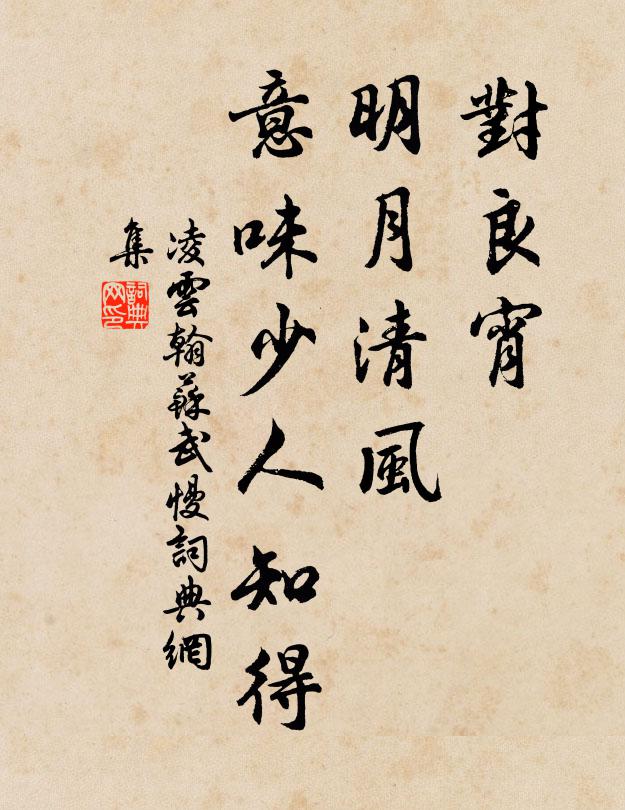 對良宵
明月清風
意味少人知得
凌雲翰蘇武慢詞典網
集
詞典
网印